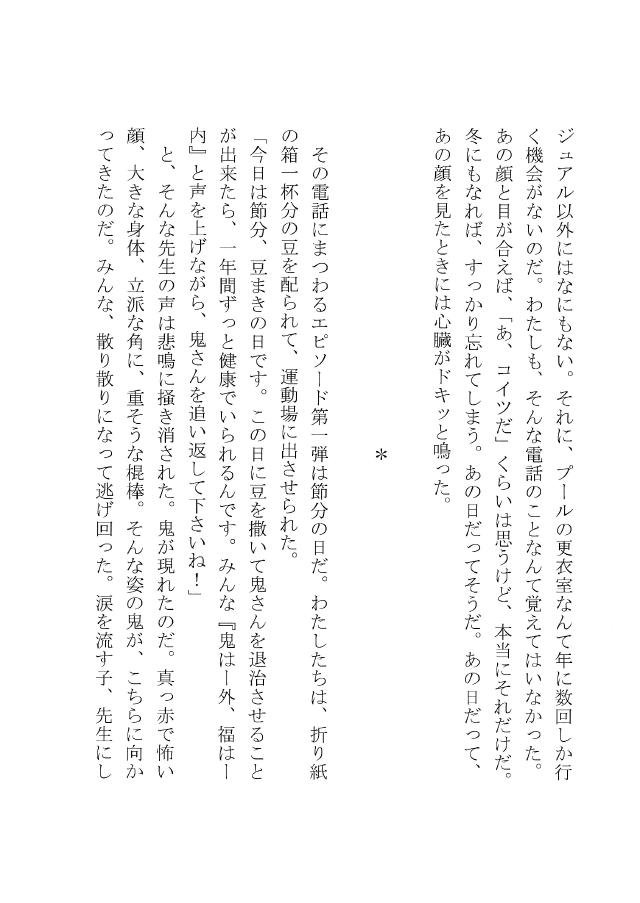 ジュアル以外にはなにもない。それに、プールの更衣室なんて年に数回しか行
く機会がないのだ。わたしも、そんな電話のことなんて覚えてはいなかった。
あの顔と目が合えば、「あ、コイツだ」くらいは思うけど、本当にそれだけだ。
冬にもなれば、すっかり忘れてしまう。あの日だってそうだ。あの日だって、
あの顔を見たときには心臓がドキッと鳴った。
＊
その電話にまつわるエピソード第一弾は節分の日だ。わたしたちは、折り紙
の箱一杯分の豆を配られて、運動場に出させられた。
「今日は節分、豆まきの日です。この日に豆を撒いて鬼さんを退治させること
が出来たら、一年間ずっと健康でいられるんです。みんな『鬼はー外、福はー
内』と声を上げながら、鬼さんを追い返して下さいね！」
と、そんな先生の声は悲鳴に掻き消された。鬼が現れたのだ。真っ赤で怖い
顔、大きな身体、立派な角に、重そうな棍棒。そんな姿の鬼が、こちらに向か
ってきたのだ。みんな、散り散りになって逃げ回った。涙を流す子、先生にし